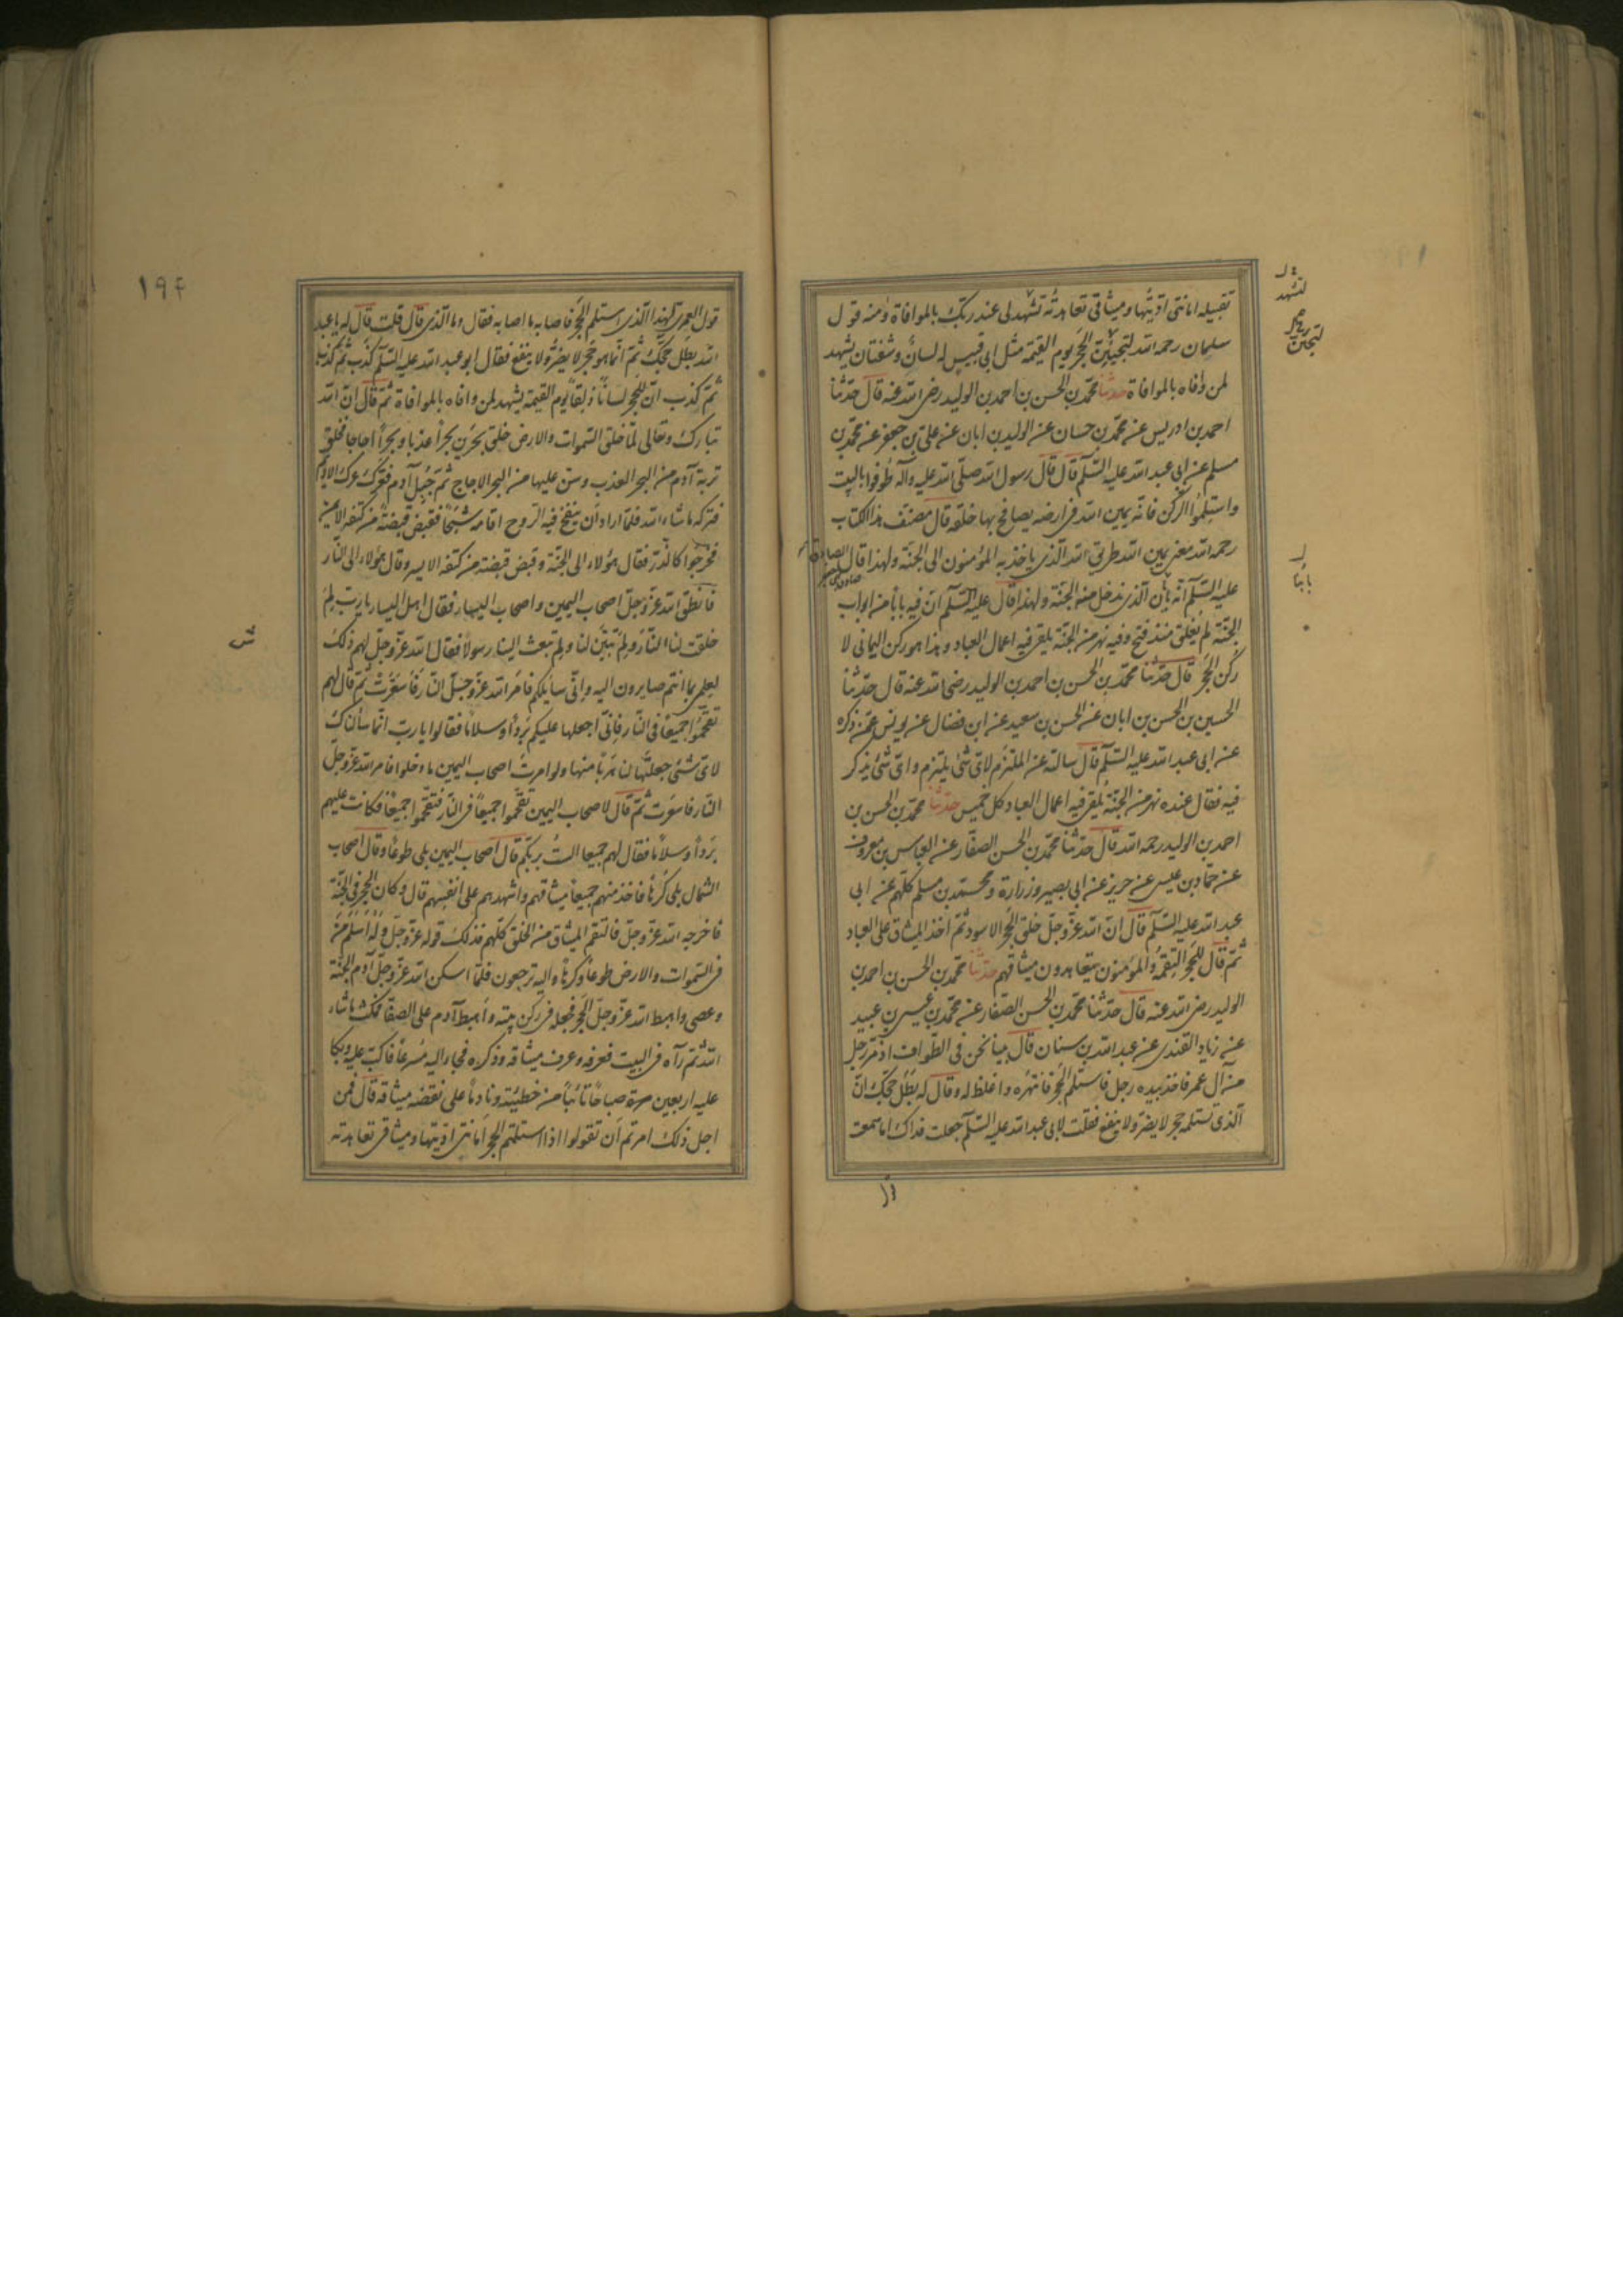 تقبيله امانتى اديتها وميثاقى تعاهدته لتشهد لى عند ربك بالموافاة ومنه قول
سلمان رحمه الله ليجيئن الحجر يوم القيمة مثل ابى قبيس له لسان وشفتان يشهد
لمن وافاه بالموافاة حدثنا محمد بن الحسن بن احمد بن الوليد رضى الله عنه قال حدثنا
احمد بن ادريس عن محمد بن حسان عن الوليد بن ابان عن على بن جعفر عن محمد بن
مسلم عن ابى عبد الله عليه السلم قال قال رسول الله صلى الله عليه وآله طوفوا بالبيت
واستلموا الركن فانه يمين الله فى ارضه يصافح بها خلقه قال مصنف هذا الكتاب
رحمه الله معنى يمين الله طريق الله الذى ياخذ به المؤمنون الى الجنة ولهذا قال الصادق
عليه السلم انه بابنا الذى ندخل منه الجنة ولهذا قال عليه السلم ان فيه بابا من ابواب
الجنة لم يغلق منذ فتح وفيه نهر من الجنة يلقى فيه اعمال العباد وهذا هو ركن اليمانى لا
ركن الحجر قال حدثنا محمد بن الحسن بن احمد بن الوليد رضى الله عنه قال حدثنا
الحسين بن الحسن بن ابان عن الحسن بن سعيد عن ابن فضال عن يونس عمن ذكره
عن ابى عبد الله عليه السلم قال سالته عن الملتزم لاى شئ يلتزم واى شئ يذكر
فيه فقال عنده نهر من الجنة يلقى فيه اعمال العباد كل خميس حدثنا محمد بن الحسن بن
احمد بن الوليد رحمه الله قال حدثنا محمد بن الحسن الصفار عن العباس بن معروف
عن حماد بن عيسى عن حريز عن ابى بصير وزرارة ومحمد بن مسلم كلهم عن ابى
عبد الله عليه السلم قال ان الله عز وجل خلق الحجر الاسود ثم اخذ الميثاق على العباد
ثم قال للحجر التقمه والمؤمنون يتعاهدون ميثاقهم حدثنا محمد بن الحسن بن احمد بن
الوليد رضى الله عنه قال حدثنا محمد بن الحسن الصفار عن محمد بن عيسى بن عبيد
عن زياد القندى عن عبد الله بن سنان قال بينا نحن فى الطواف اذ مر رجل
من آل عمر فاخذ بيده رجل فاستلم الحجر فانتهره واغلظ له وقال له بطل حجك ان
الذى تستلمه حجر لا يضر ولا ينفع فقلت لابى عبد الله عليه السلم جعلت فداك اما سمعت
لتشهد
ليجيئن
بابنا
قول العمرى لهذا الذى استلم الحجر فاصابه ما اصابه فقال وما الذى قال قلت قال له يا عبد
الله بطل حجك ثم انما هو حجر لا يضر ولا ينفع فقال ابو عبد الله عليه السلم كذب ثم كذب
ثم كذب ان للحجر لسانا ذلقا يوم القيمة يشهد لمن وافاه بالموافاة ثم قال ان الله
تبارك وتعالى لما خلق السموات والارض خلق بحرين بحرا عذبا وبحرا اجاجا فخلق
تربة آدم من البحر العذب وسن عليها من البحر الاجاج ثم جبل آدم فعرك عرك الاديم
فتركه ما شاء الله فلما اراد ان ينفخ فيه الروح اقامه شبحا فقبض قبضة من كتفه الايمن
فخرجوا كالذر فقال هؤلاء الى الجنة وقبض قبضة من كتفه الايسر وقال هؤلاء الى النار
فانطق الله عز وجل اصحاب اليمين واصحاب اليسار فقال اهل اليسار يا رب لم
خلقت لنا النار ولم تبين لنا ولم تبعث الينا رسولا فقال الله عز وجل لهم ذلك
لعلمى بما انتم صايرون اليه وانى سابليكم فامر الله عز وجل النار فاسعرت ثم قال لهم
تقحموا جميعا فى النار فانى اجعلها عليكم بردا وسلاما فقالوا يا رب انما سألناك
لاى شئ جعلتها لنا هربا منها ولو امرت اصحاب اليمين ما دخلوا فامر الله عز وجل
النار فاسعرت ثم قال لاصحاب اليمين تقحموا جميعا فى النار فتقحموا جميعا فكانت عليهم
بردا وسلاما فقال لهم جميعا الست بربكم قال اصحاب اليمين بلى طوعا وقال اصحاب
الشمال بلى كرها فاخذ منهم جميعا ميثاقهم واشهدهم على انفسهم قال وكان الحجر فى الجنة
فاخرجه الله عز وجل فالتقم الميثاق من الخلق كلهم فذلك قوله عز وجل وله اسلم من
فى السموات والارض طوعا وكرها واليه ترجعون فلما اسكن الله عز وجل آدم الجنة
وعصى واهبط الله عز وجل الحجر فجعله فى ركن بيته واهبط آدم على الصفا فمكث ما شاء
الله ثم رآه فى البيت فعرفه وعرف ميثاقه وذكره فجاء اليه مسرعا فاكب عليه وبكا
عليه اربعين صباحا تائبا من خطيئته ونادما على نقضه ميثاقه قال فمن
اجل ذلك امرتم ان تقولوا اذا استلمتم الحجر امانتى اديتها وميثاقى تعاهدته
۱۹۴